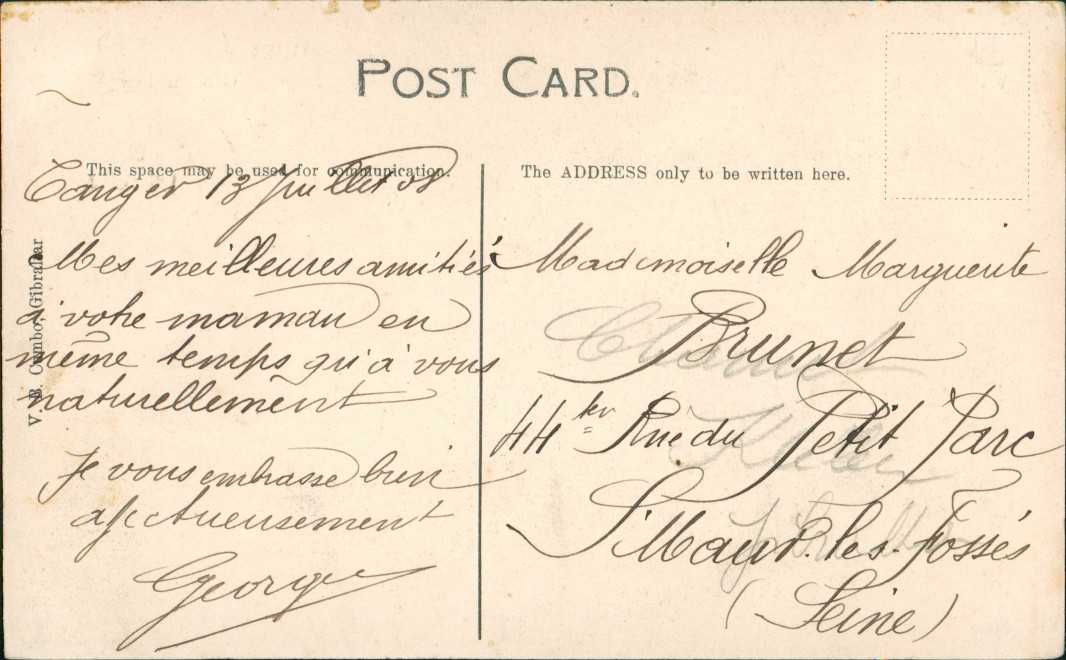 POST CARD.
This space may be used for communication.
Tanger 13 Juillet 08
Mes meilleures amitiés
à votre maman en
même temps qu'à vous
naturellement
Je vous embrasse bien
affectueusement
George
V. B. Cumbo, Gibraltar
The ADDRESS only to be written here.
Mademoiselle Marguerite
Brunet
44 ter Rue du Petit Parc
St Maur-les-Fossés
(Seine)